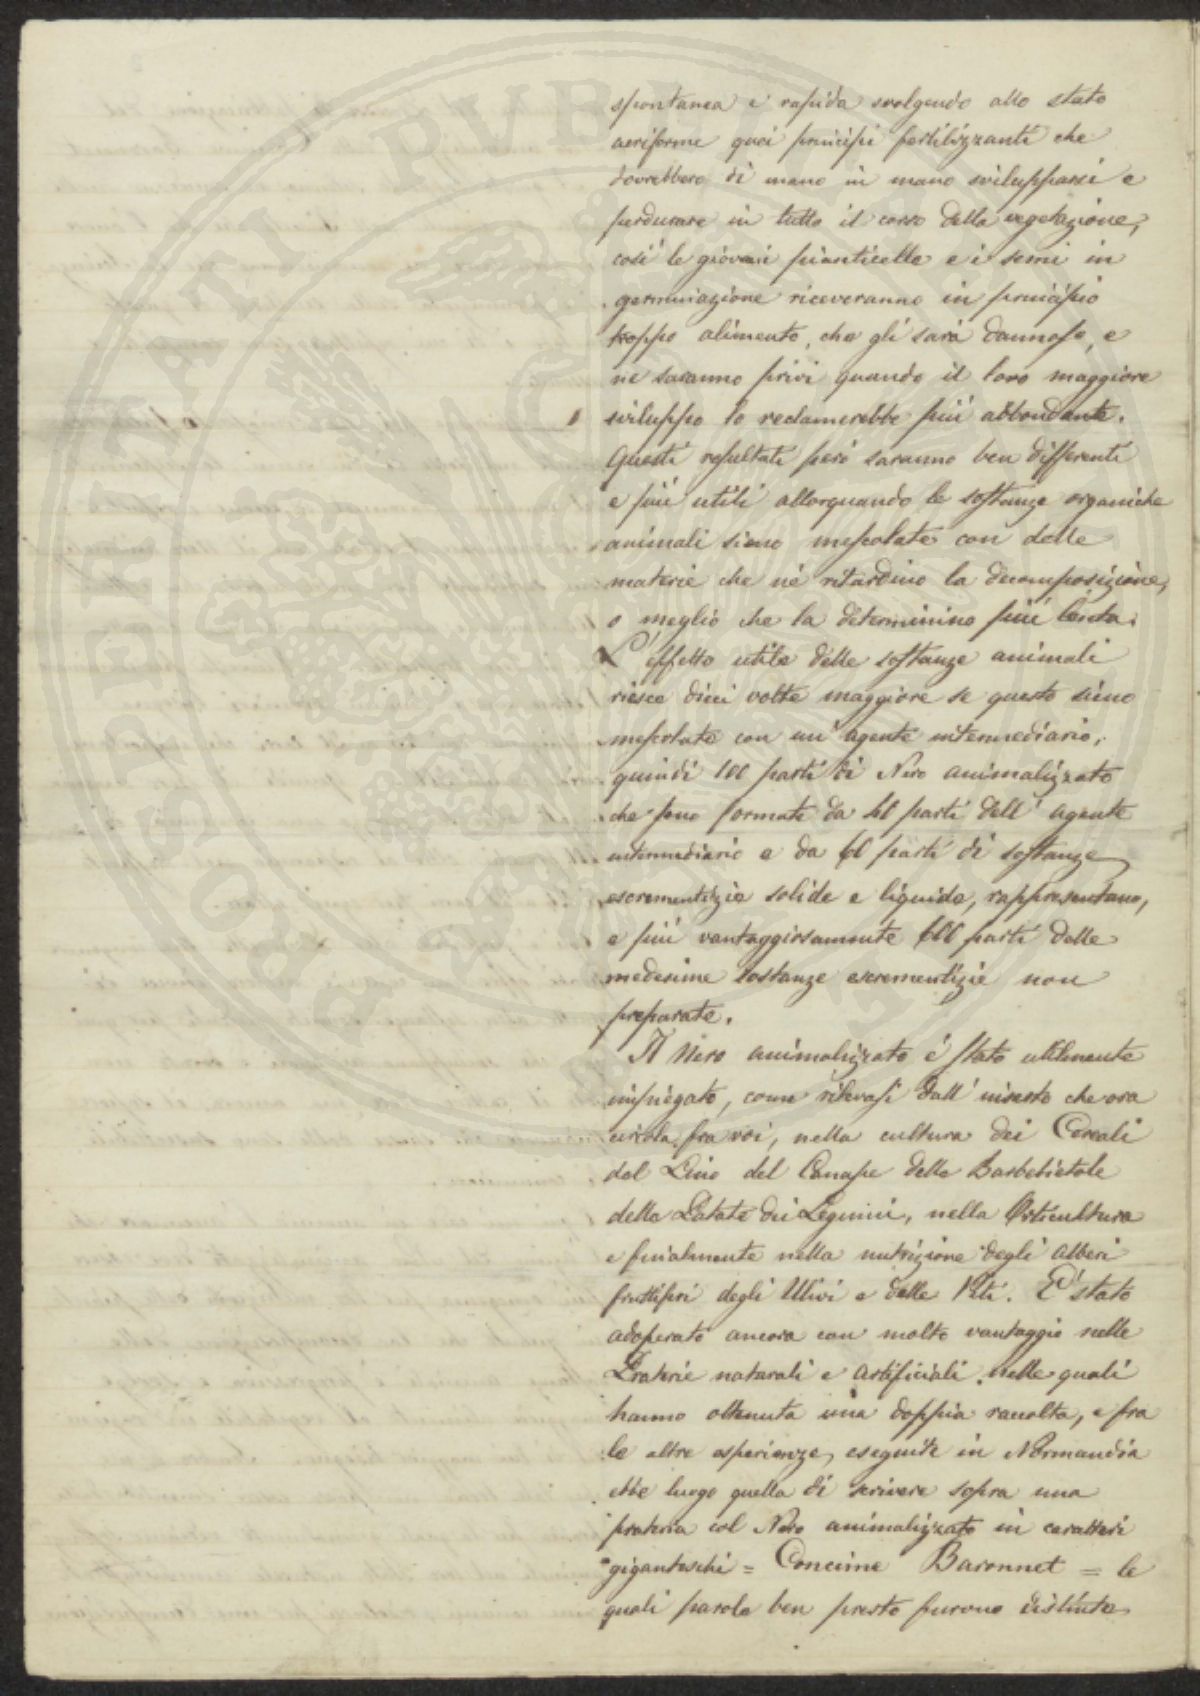 spontanea e rapida svolgendo allo stato
aeriforme quei principi fertilizzanti che
dovrebbero di mano in mano svilupparsi e
perdurare in tutto il corso della vegetazione,
così le giovani pianticelle e i semi in
germinazione riceveranno in principio
troppo alimento, che gli sarà dannoso, e
ne saranno privi quando il loro maggiore
sviluppo lo reclamerebbe più abbondante.
Questi resultati però saranno ben differenti
e più utili allorquando le sostanze organiche
animali sieno mescolate con delle
materie che ne ritardino la decomposizione,
o meglio che la determinino più lenta.
L'effetto utile delle sostanze animali
riesce dieci volte maggiore se queste sieno
mescolate con un'agente intermediario,
quindi 100 parti di Nero animalizzato
che sono formate da 40 parti dell'agente
intermediario e da 60 parti di sostanze
escrementizie solide e liquide, rappresentano,
e più vantaggiosamente 600 parti delle
medesime sostanze escrementizie non
preparate.
Il Nero animalizzato è stato utilmente
impiegato, come rilevasi dall'inserto che ora
circola fra voi, nella cultura dei Cereali
del Lino del Canape delle Barbebietole
delle Patate dei Legumi, nella Orticultura
e finalmente nella nutrizione degli alberi
fruttiferi degli Ulivi e delle Viti. E' stato
adoperato ancora con molto vantaggio nelle
Praterie naturali e artificiali nelle quali
hanno ottenuta una doppia raccolta, e fra
le altre esperienze, eseguite in Normandia
ebbe luogo quella di scrivere sopra una
prateria col Nero animalizzato in caratteri
giganteschi = Concime Baronnet = le
quali parole ben presto furono distinte